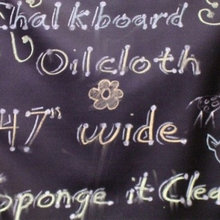 Chalkboard
Oilcloth
47" wide
Sponge it Clea